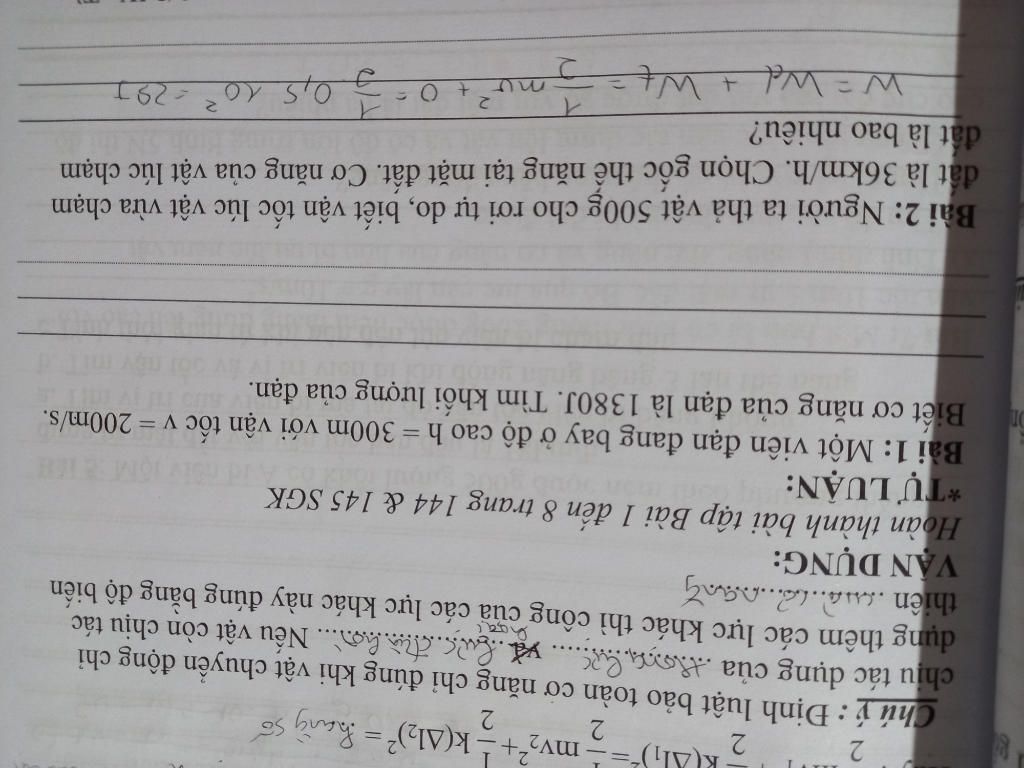 2 2 2 2
k(Δl₁)² = mv₂² + k(Δl₂)² = hằng số
Chú ý : Định luật bảo toàn cơ năng chỉ đúng khi vật chuyển động chỉ
chịu tác dụng của ...trọng lực... ...lực đàn hồi... Nếu vật còn chịu tác
dụng thêm các lực khác thì công của các lực khác này đúng bằng độ biến
thiên ...của cơ năng
VẬN DỤNG:
Hoàn thành bài tập Bài 1 đến 8 trang 144 & 145 SGK
*TỰ LUẬN:
Bài 1: Một viên đạn đang bay ở độ cao h = 300m với vận tốc v = 200m/s.
Biết cơ năng của đạn là 1380J. Tìm khối lượng của đạn.
Bài 2: Người ta thả vật 500g cho rơi tự do, biết vận tốc lúc vật vừa chạm
đất là 36km/h. Chọn gốc thế năng tại mặt đất. Cơ năng của vật lúc chạm
đất là bao nhiêu?
W = Wđ + Wt = 1/2 mv² + 0 = 1/2 0,5 10² = 25J